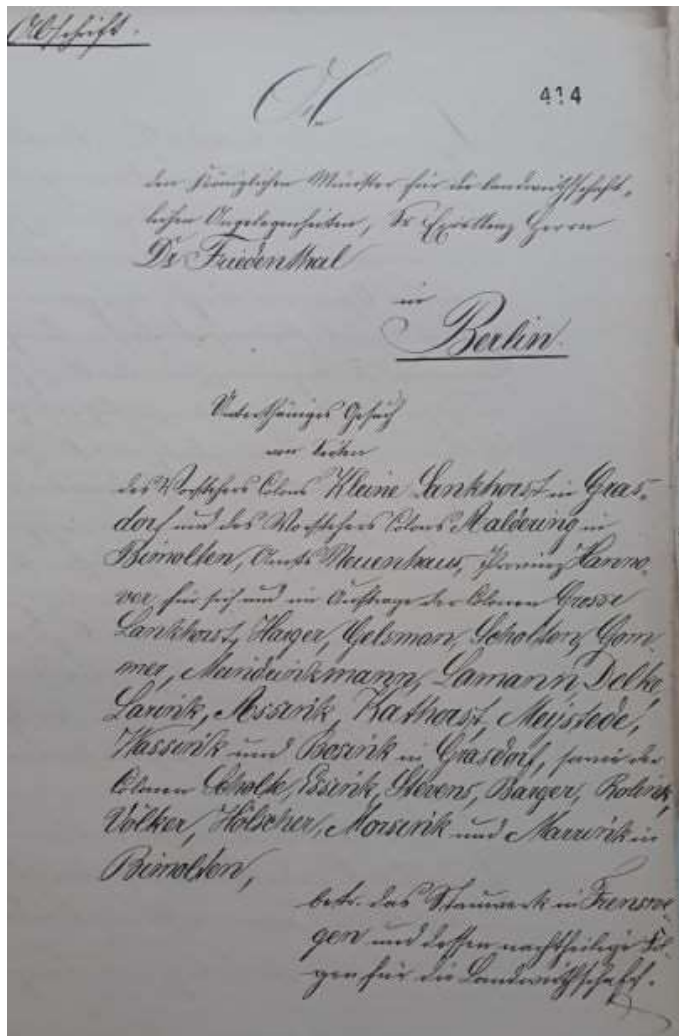 Abschrift.
An
414
den Königlichen Minister für die landwirthschaft-
lichen Angelegenheiten, Sr Excellenz Herrn
Dr Friedenthal
in
Berlin.
Unterthäniges Gesuch
von Seiten
des Vorstehers Colons Kleine Lankhorst in Gras-
dorf und des Vorstehers Colons Aaldering in
Bimolten, Amts Neuenhaus, Provinz Hanno-
ver, für sich und im Auftrage der Colonen Grosse
Lankhorst, Harger, Gelsman, Scholten, Gom-
mer, Lamann, Delke,
Larink, Assink, Kathorst, Meistede,
Wassink und Bosink in Grasdorf, sowie der
Colonen Scholte, Essink, Stevens, Barger, Rolink,
Völker, Hölscher, Morsink und Marrink in
Bimolten,
betr. das Stauwerk in Frenswe-
gen und dessen nachtheilige Fol-
gen für die Landwirthschaft.